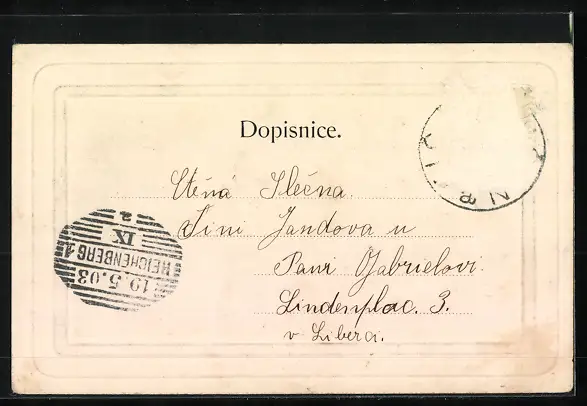 Dopisnice.
Ctěná Slečna
Tini Jandova u
Paní Gabrielovi
Lindenplac. 3.
v Liberci.
19.5.03
REICHENBERG 1
IX
a